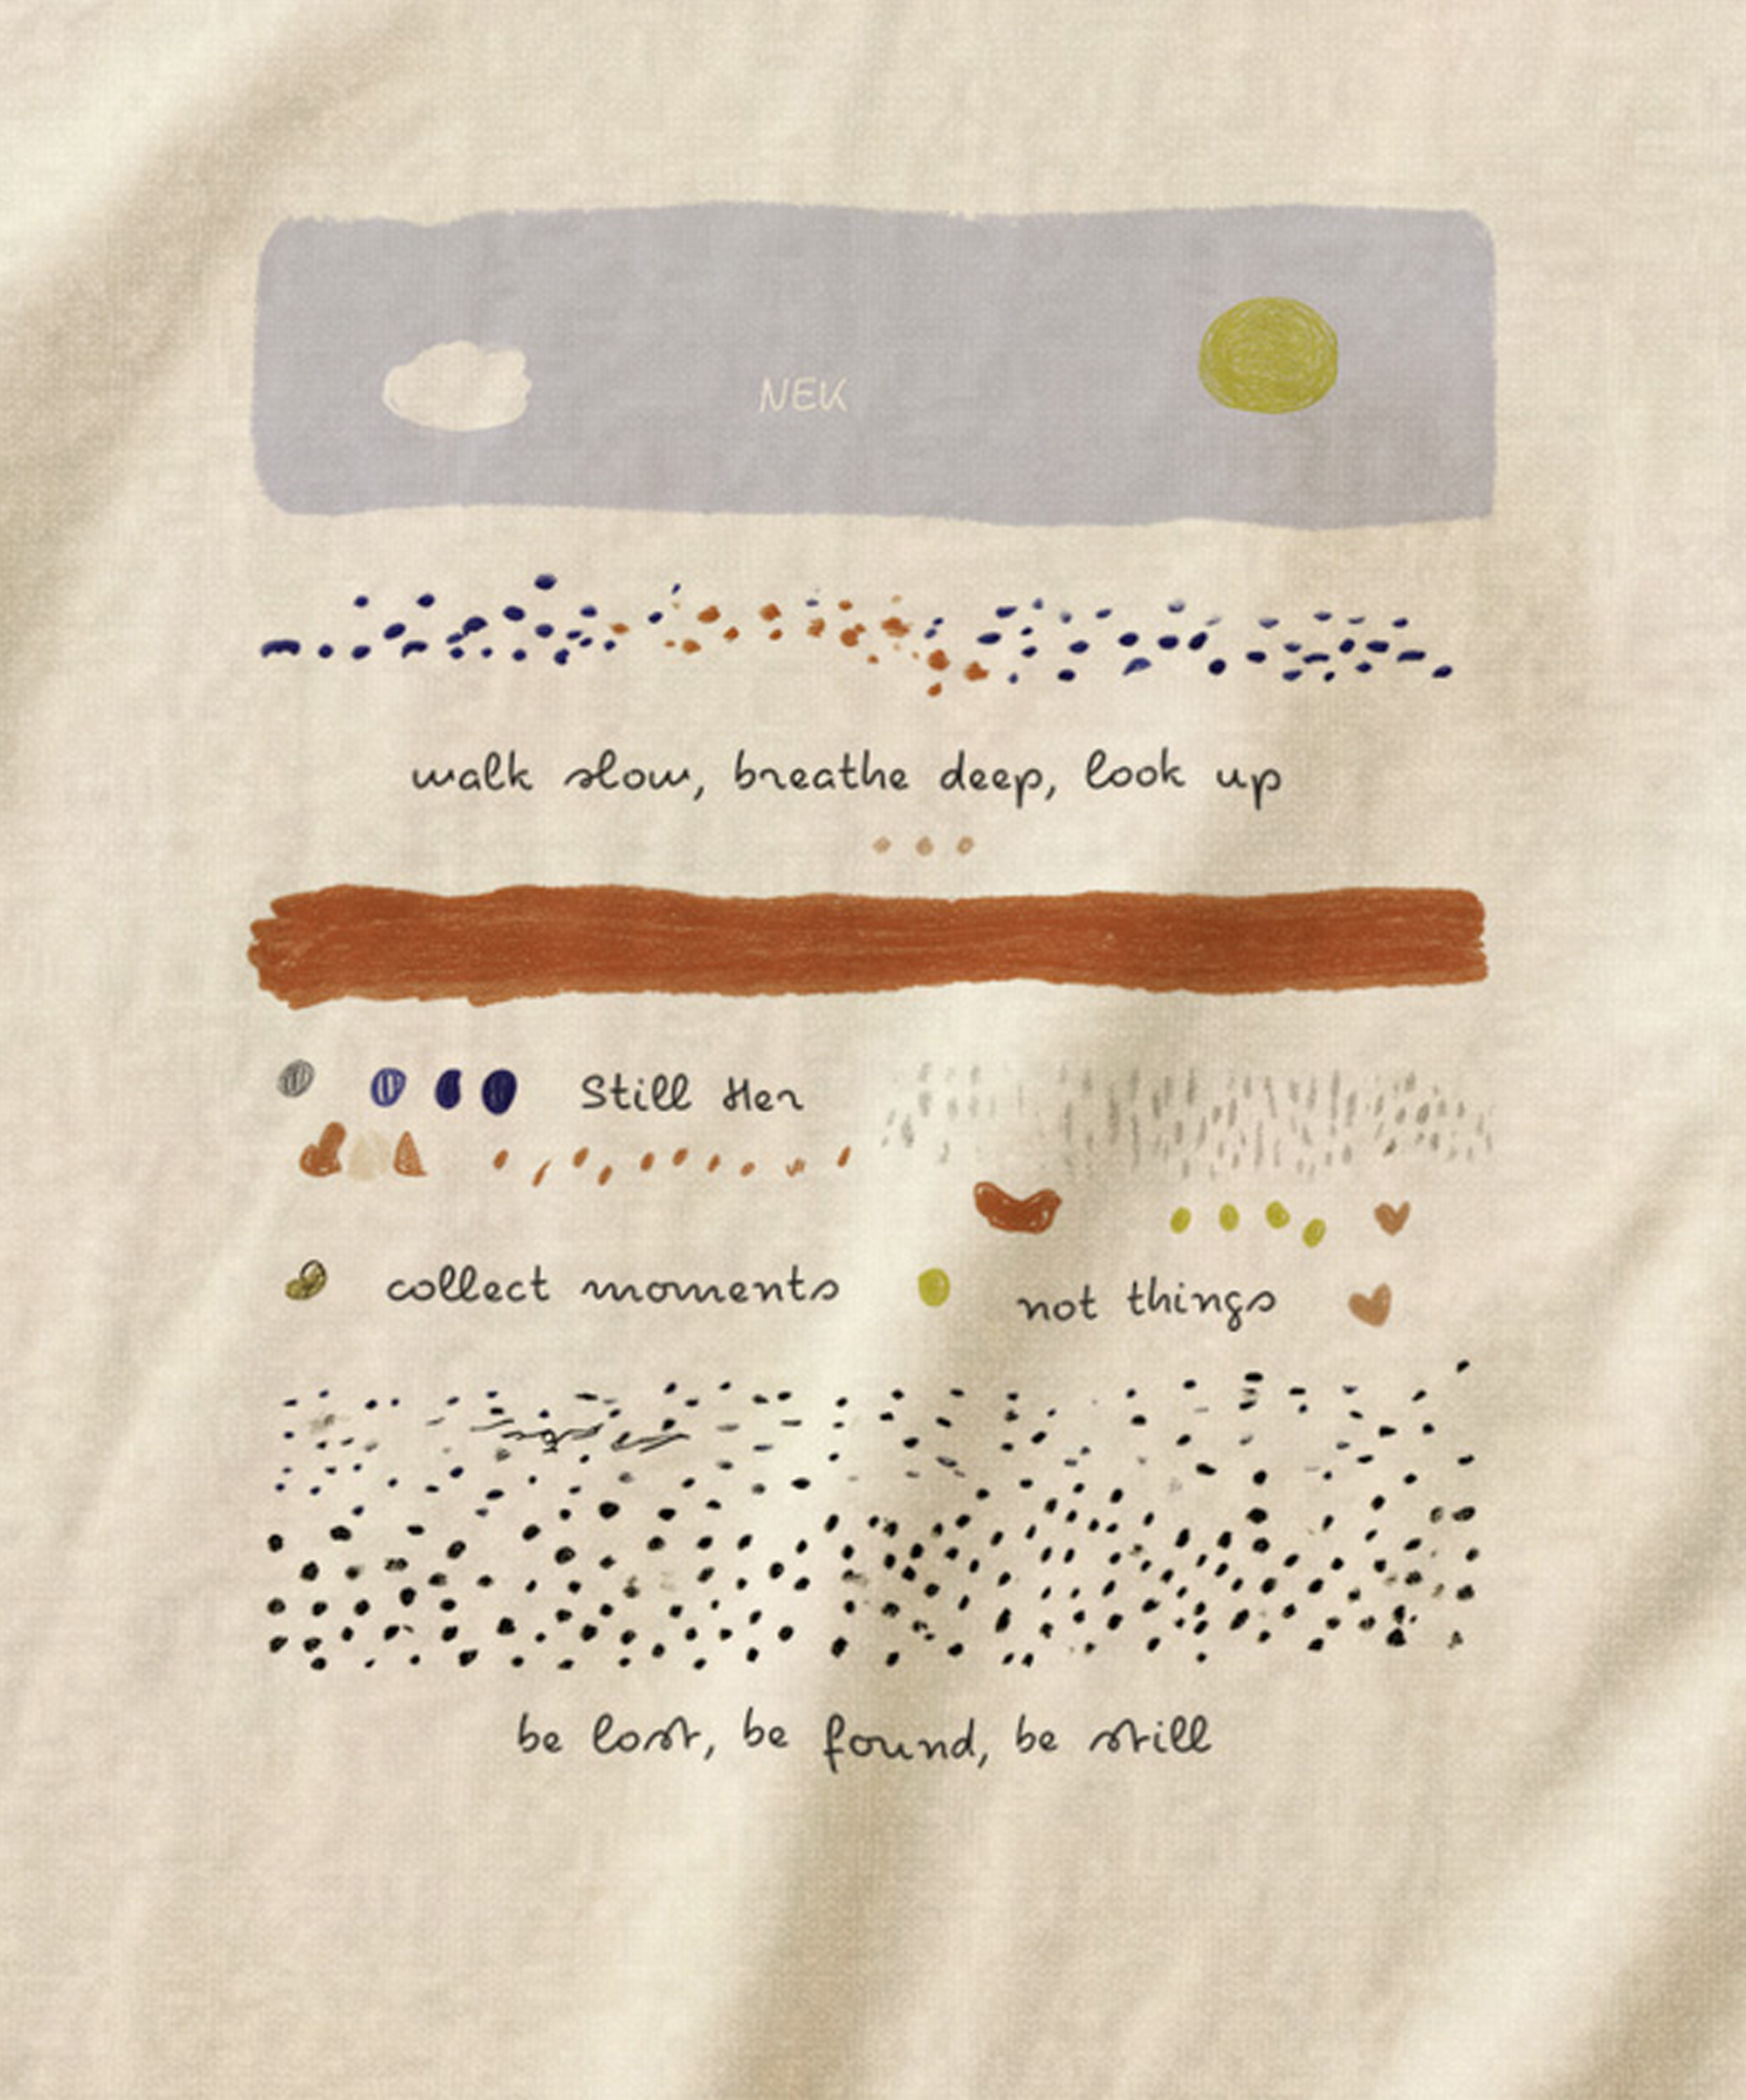 NEK
walk slow, breathe deep, look up
Still Her
collect moments
not things
be lost, be found, be still